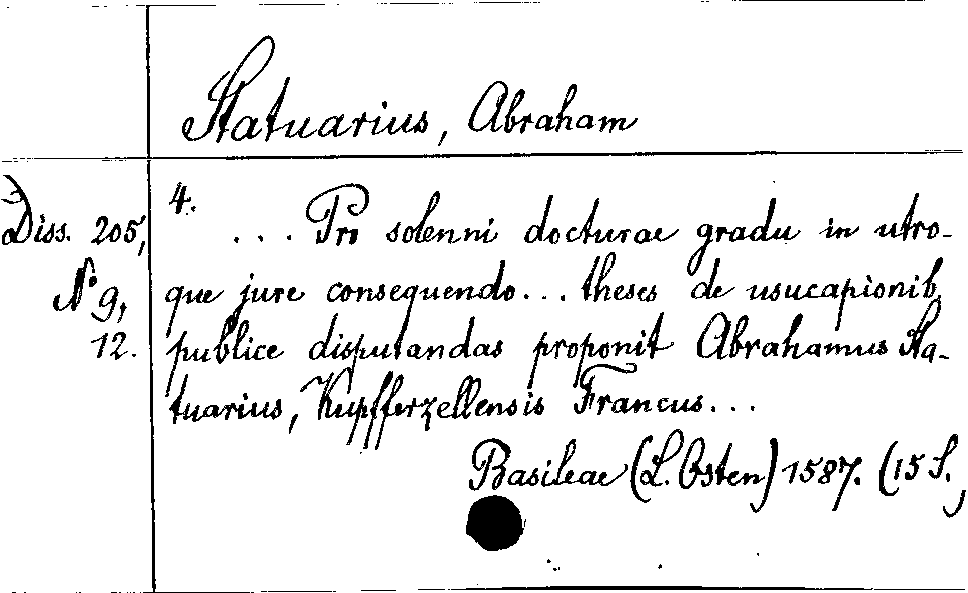 Statuarius, Abraham
Diss. 205,
No 9,
12.
4.
... Pro solenni docturae gradu in utro-
que jure consequendo... theses de usucapionib,
publice disputandas proponit Abrahamus Sta-
tuarius, Kupfferzellensis Francus...
Basileae (L. Osten) 1587. (15 S.)